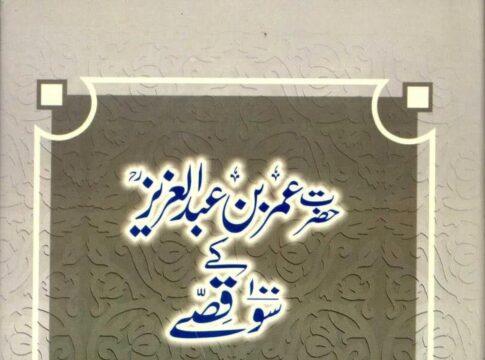 حضرت عمر بن عبدالعزیزؒ
کے
سو۱۰۰ قصّے